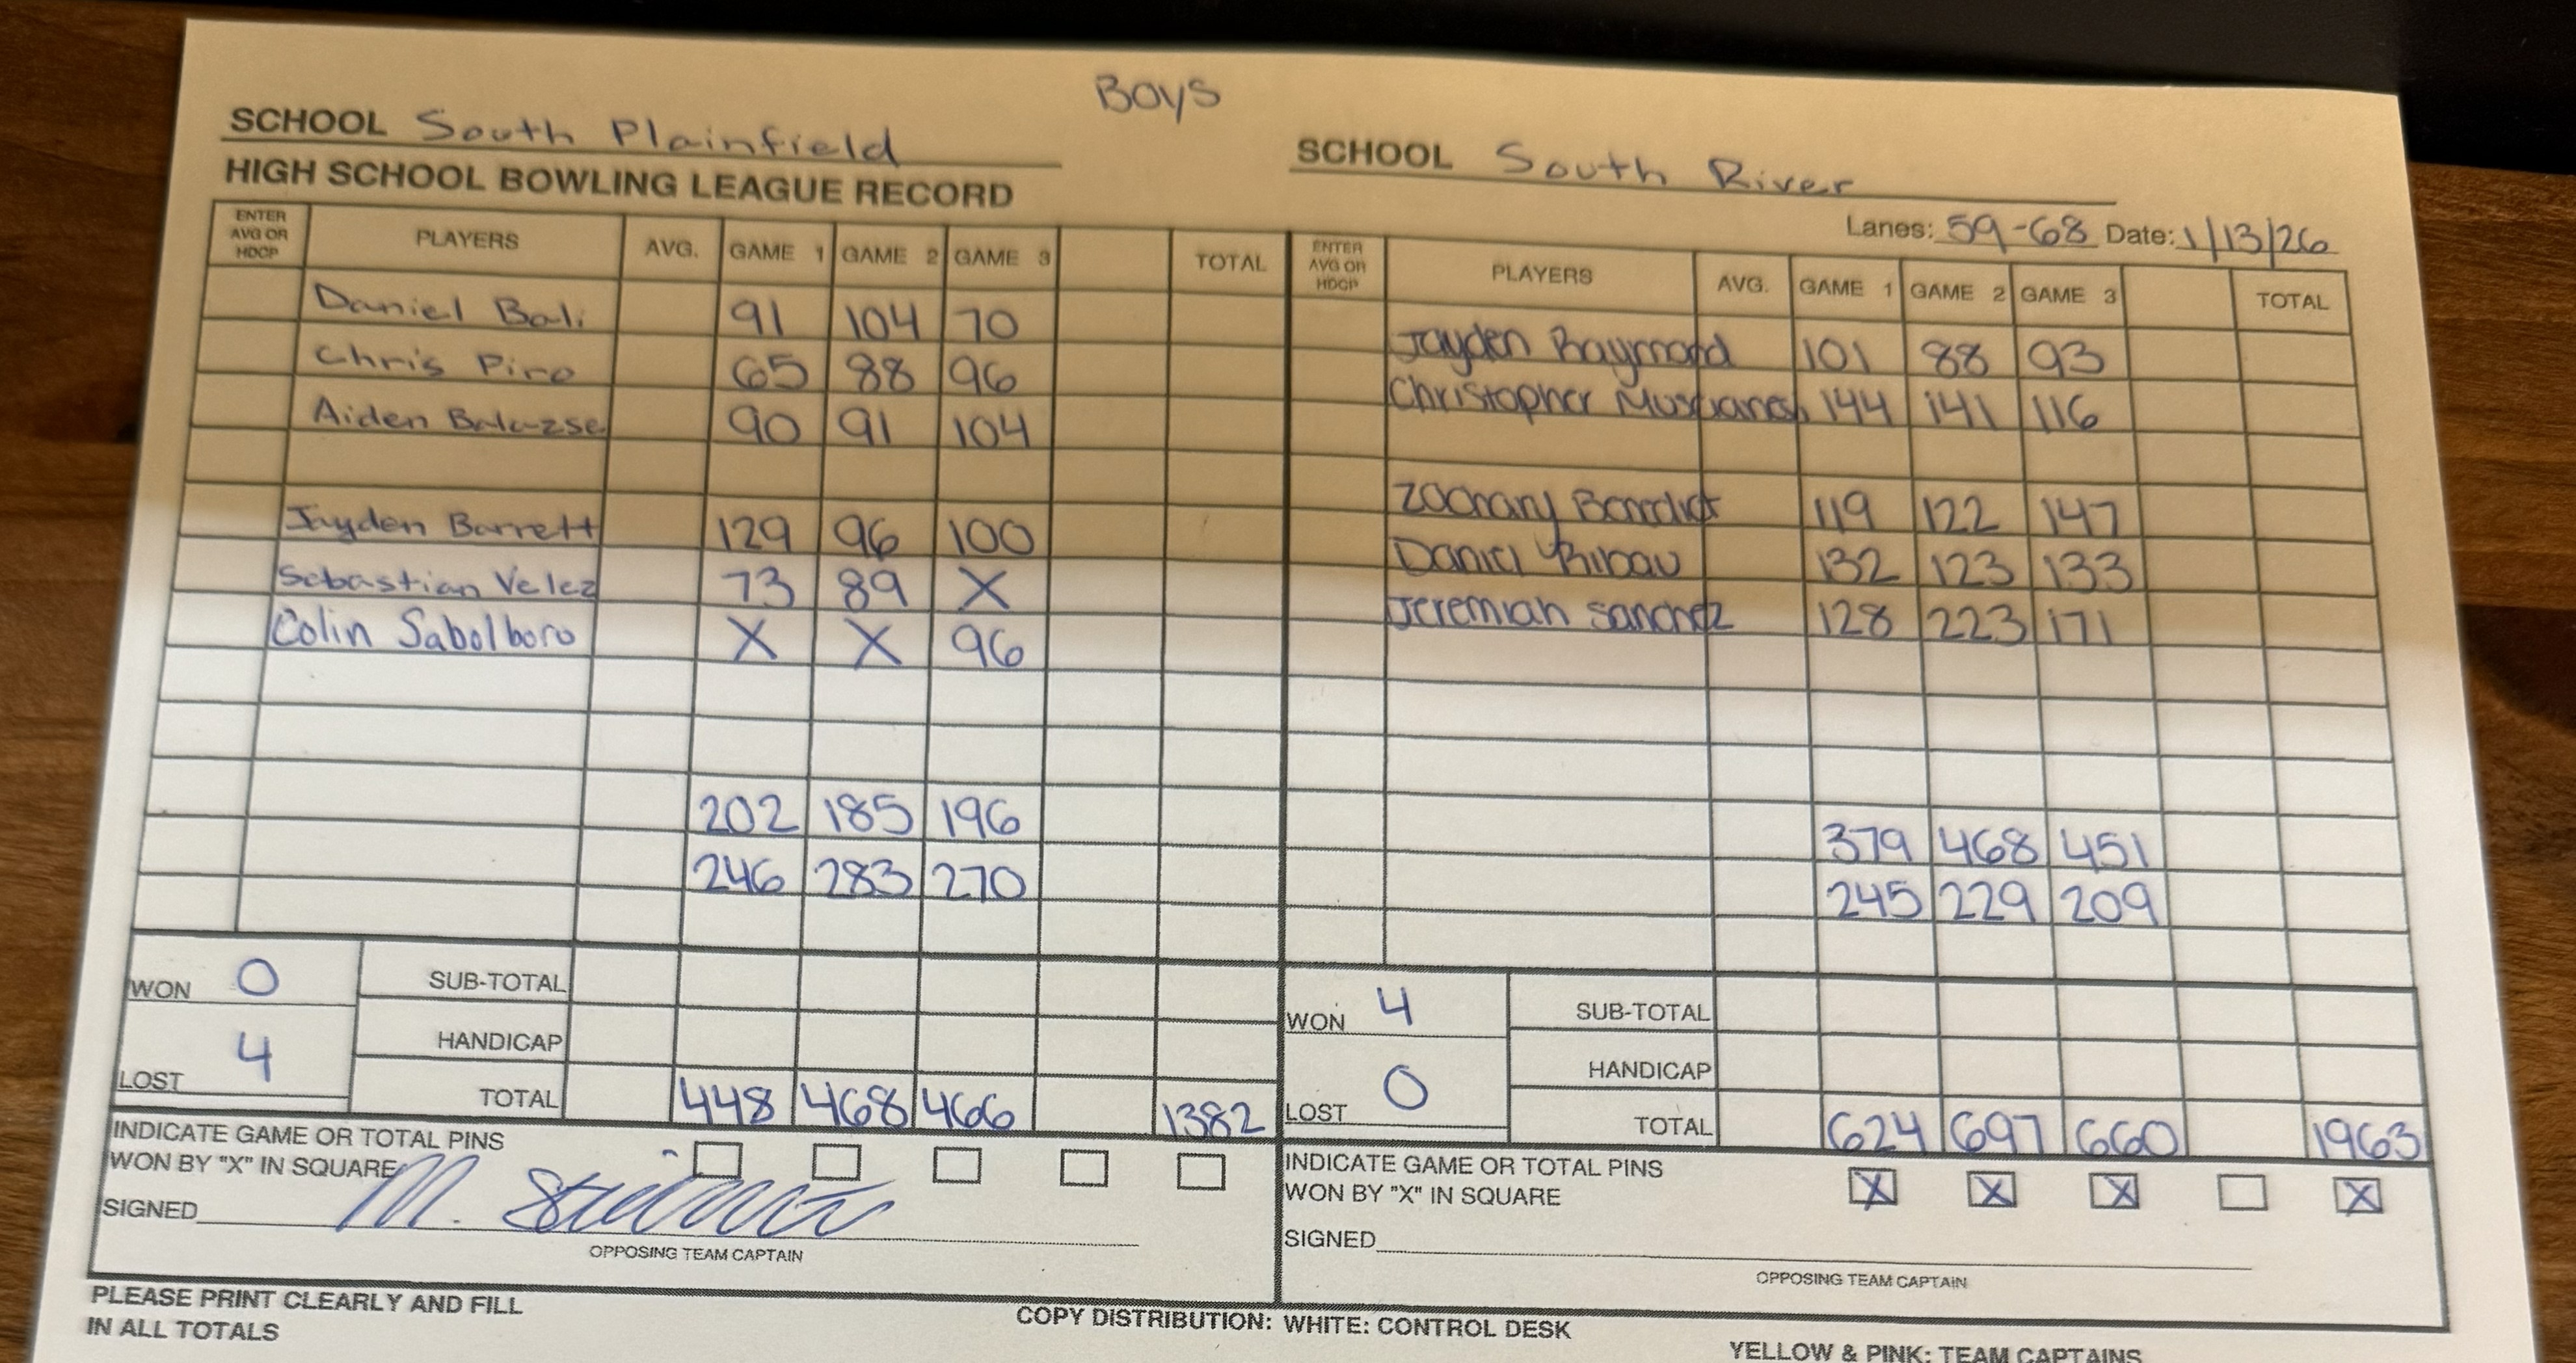 Boys
SCHOOL South Plainfield
HIGH SCHOOL BOWLING LEAGUE RECORD
ENTER AVG OR HDCP PLAYERS AVG. GAME 1 GAME 2 GAME 3 TOTAL
Daniel Bali 91 104 70
Chris Piro 65 88 96
Aiden 90 91 104
Jayden Barrett 129 96 100
Sebastian Velez 73 89 X
Colin Sabolboro X X 96
202 185 196
246 283 270
WON 0
LOST 4
SUB-TOTAL
HANDICAP
TOTAL 448 468 466 1382
INDICATE GAME OR TOTAL PINS
WON BY "X" IN SQUARE
SIGNED
OPPOSING TEAM CAPTAIN
SCHOOL South River
Lanes: 59-68 Date: 1/13/26
ENTER AVG OR HDCP PLAYERS AVG. GAME 1 GAME 2 GAME 3 TOTAL
Jayden Raymond 101 88 93
Christopher 144 141 116
Zachary Benedict 119 122 147
Daniel Ribau 132 123 133
Jeremiah Sanchez 128 223 171
379 468 451
245 229 209
WON 4
LOST 0
SUB-TOTAL
HANDICAP
TOTAL 624 697 660 1963
INDICATE GAME OR TOTAL PINS
WON BY "X" IN SQUARE X X X X
SIGNED
OPPOSING TEAM CAPTAIN
PLEASE PRINT CLEARLY AND FILL
IN ALL TOTALS
COPY DISTRIBUTION: WHITE: CONTROL DESK
YELLOW & PINK: TEAM CAPTAINS